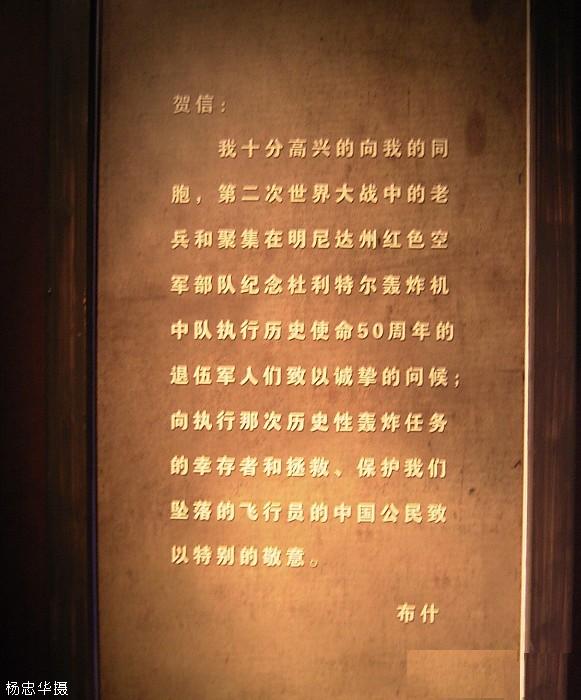 贺信：
我十分高兴的向我的同
胞，第二次世界大战中的老
兵和聚集在明尼达州红色空
军部队纪念杜利特尔轰炸机
中队执行历史使命50周年的
退伍军人们致以诚挚的问候；
向执行那次历史性轰炸任务
的幸存者和拯救、保护我们
坠落的飞行员的中国公民致
以特别的敬意。
布什
杨忠华摄